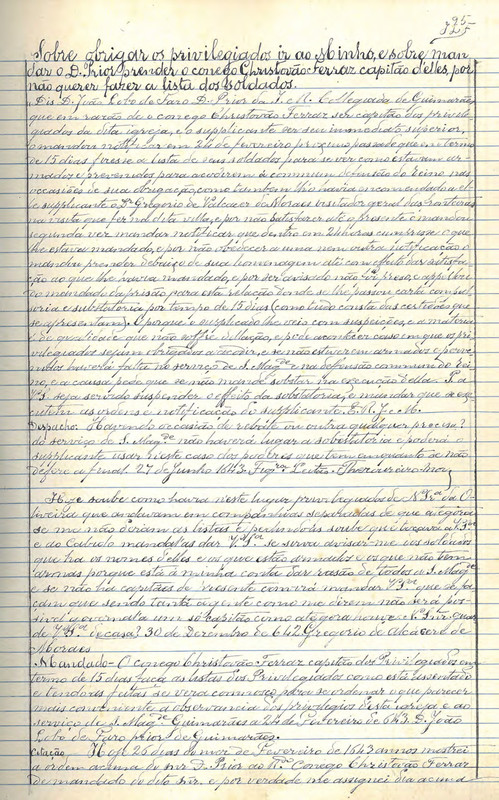 325
Sobre obrigar os privilegiados ir ao Minho, e sobre man
dar o D. Prior prender o conego Christovão Ferraz, capitão d'elles, por
não querer fazer a lista dos soldados.
Diz D. João Lobo de Faro D. Prior da I. e R. Collegiada de Guimarães
que em razão de o conego Christovão Ferraz ser capitão dos privile
giados da dita igreja, e o supplicante ser seu immediato superior,
o mandou notificar em 24 de fevereiro proximo passado que em termo
de 15 dias fizesse a lista de seus soldados para se ver como estavam ar
mados e prevenidos para acodirem á commum defensão do Reino nas
occasiões de sua obrigação, como tambem lh'o havia encommendado a el
le supplicante o Dr. Gregorio de Valcacer de Moraes visitador geral das fronteiras
na visita que fez na dita villa, e por não satisfazer até o presente o mandou
segunda vez mandar notificar que dentro em 24 horas cumprisse o que
lhe estava mandado, e por não obedecer a uma nem outra notificação o
mandou prender debaixo de sua homenagem até com effeito dar satisfa
ção ao que lhe havia mandado, e por ser avisado não foi preso, e appellou
do mandado da prisão para esta relação donde se lhe passou carta compul
soria e substatoria por tempo de 15 dias (como tudo consta das certidões que
se apresentam). E porque o supplicado lhe veio com suspeições, e a materia
é de qualidade que não soffre dilação, e póde acontecer caso em que os pri
vilegiados sejam obrigados a acodir, e se não estiverem armados e preve
nidos haverá falta no serviço de S. Mag.de e na defensão commum do Rei
no, e a causa pede que se não mande sobstar na execução d'ella. P. a
V. S. seja servido suspender o effeito da substatoria, e mandar que se exe
cutem as ordens e notificação do supplicante. E. R. J. e M.
Despacho. Havendo occasião de rebate ou outra qualquer precisa
do serviço de S. Mag.de não haverá logar a sobstatoria e poderá o
supplicante usar n'este caso dos poderes que tem emquanto se não
defere a final. 27 de Junho 1643.
Hoje soube como havia n'este lugar privilegiados de N. Sr.a da O
liveira que andavam em companhias separadas de que agora
se me não deram as listas e pedindo-as soube que tocava a V. S.a
e ao Cabido mandal-as dar V. S.a se sirva avisar-me os soldados
que ha os nomes d'elles e os que estão armados e os que não tem
armas porque está á minha conta dar razão de todos a S. Mag.de
e se não ha capitães de presente convirá mandar V. S.a que se fa
çam que sendo tanta a gente como me dizem não será pos
sivel governal-a um só capitão como até agora houve
de V. S.a de casa, 30 de Dezembro de 642. Gregorio de Valcacere de
Moraes
Mandado - O conego Christovão Ferraz capitão dos Privilegiados em
termo de 15 dias faça as listas dos Privilegiados como está assentado
e tendo-as feitas se verá commosco para se ordenar o que parecer
mais conveniente á observancia dos privilegios d'esta igreja e ao
serviço de S. Mag.de Guimarães a 24 de Fevereiro de 643. D. João
Lobo de Faro prior de Guimarães.
Citação. Hoje 26 dias do mez de Fevereiro de 1643 annos mostrei
a ordem acima do snr. D. Prior ao R.do Conego Christovão Ferraz
de mandado do dito snr. e por verdade me assignei dia acima